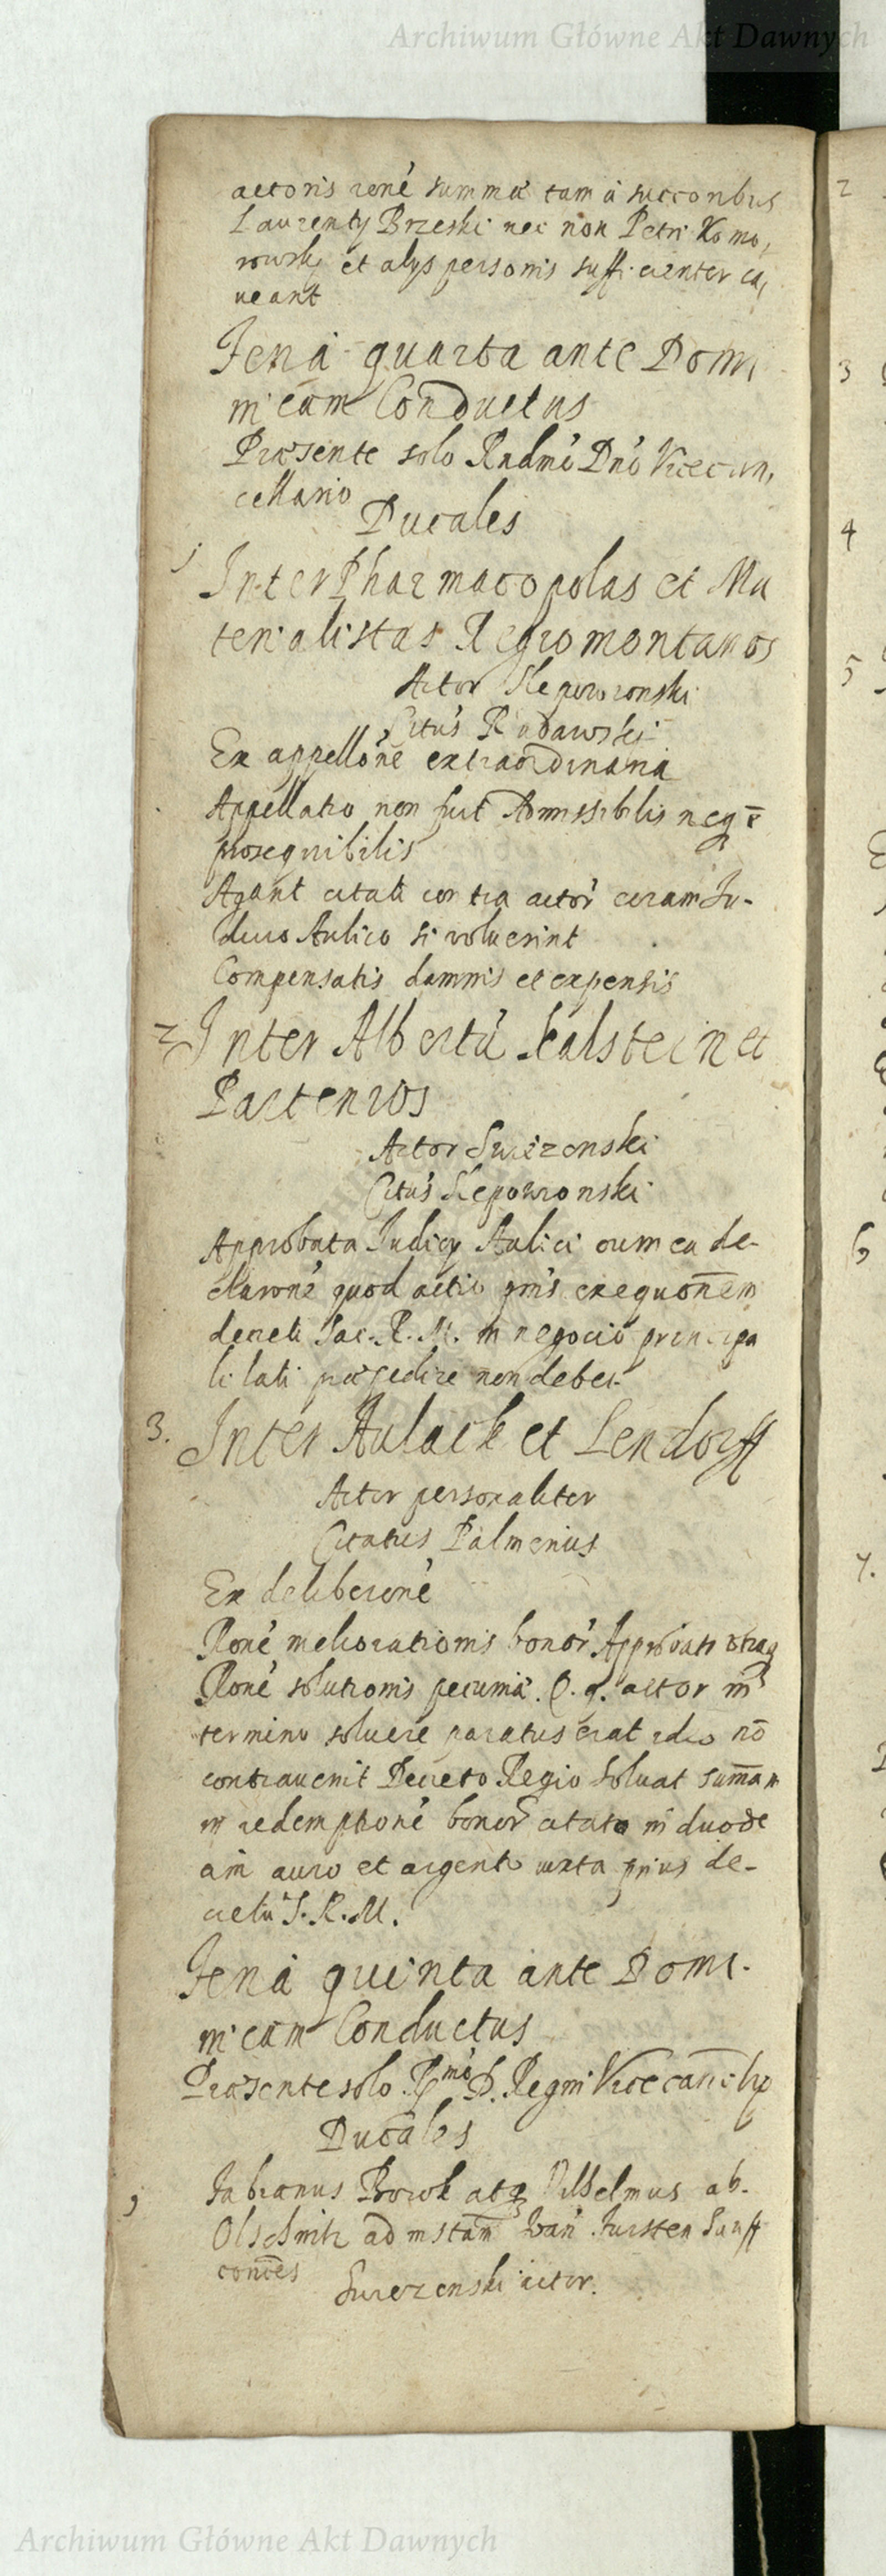 Archiwum Główne Akt Dawnych
actoris roné summá tam á succonbus
Laurentÿ Brzeski nec non Petri Komo,
rowskj et alÿs personis sufficienter ca,
ueant
Feriá quarta ante Domi
nicam Conductus
Præsente solo Rndmô Dnô Vicecan,
cellario
Ducales
1
Inter Pharmacopolas et Ma
terialistas Regiomontanos
Actor Slepowronski
Citús Radawski
Ex appellône extraordinaria
Appellatio non fuit Admissibilis neqz
prosequibilis
Agant citati contra actor coram Ju-
dicio Aulico si voluerint
Compensatis damnis et expensis
2 Inter Albertú Kalstein et
Partenios
Actor Swiezenski
Citús Slepowronski
Approbata Judicÿ Aulici cum ea de-
claroné quod actio pñs exequonem
decreti Sac. R. M. in negocio principa
li lati præpedire non debet
3. Inter Aulack et Lendorff
Actor personaliter
Citatus Palmenius
Ex deliberoné
Roné meliorationis bonor Approbatr
Roné solutionis pecuniæ. Q. q. actor in
termino soluere paratus erat ideo nō
contrauenit Decreto Regio Soluat sum̄am
in redemptioné bonor citato in duode
cim auro et argento iuxta prius de-
cretú S. R. M.
Feriá quinta ante Domi-
nicam Conductus
Præsente solo Rmô D. Regni Vicecancell
Ducales
1 Fabianus Borok atqz Vilhelmus ab.
Olschnitz ad instam Fursten
con̄es Swiezenski actor.
Archiwum Główne Akt Dawnych
2
3
4
5
6
7.